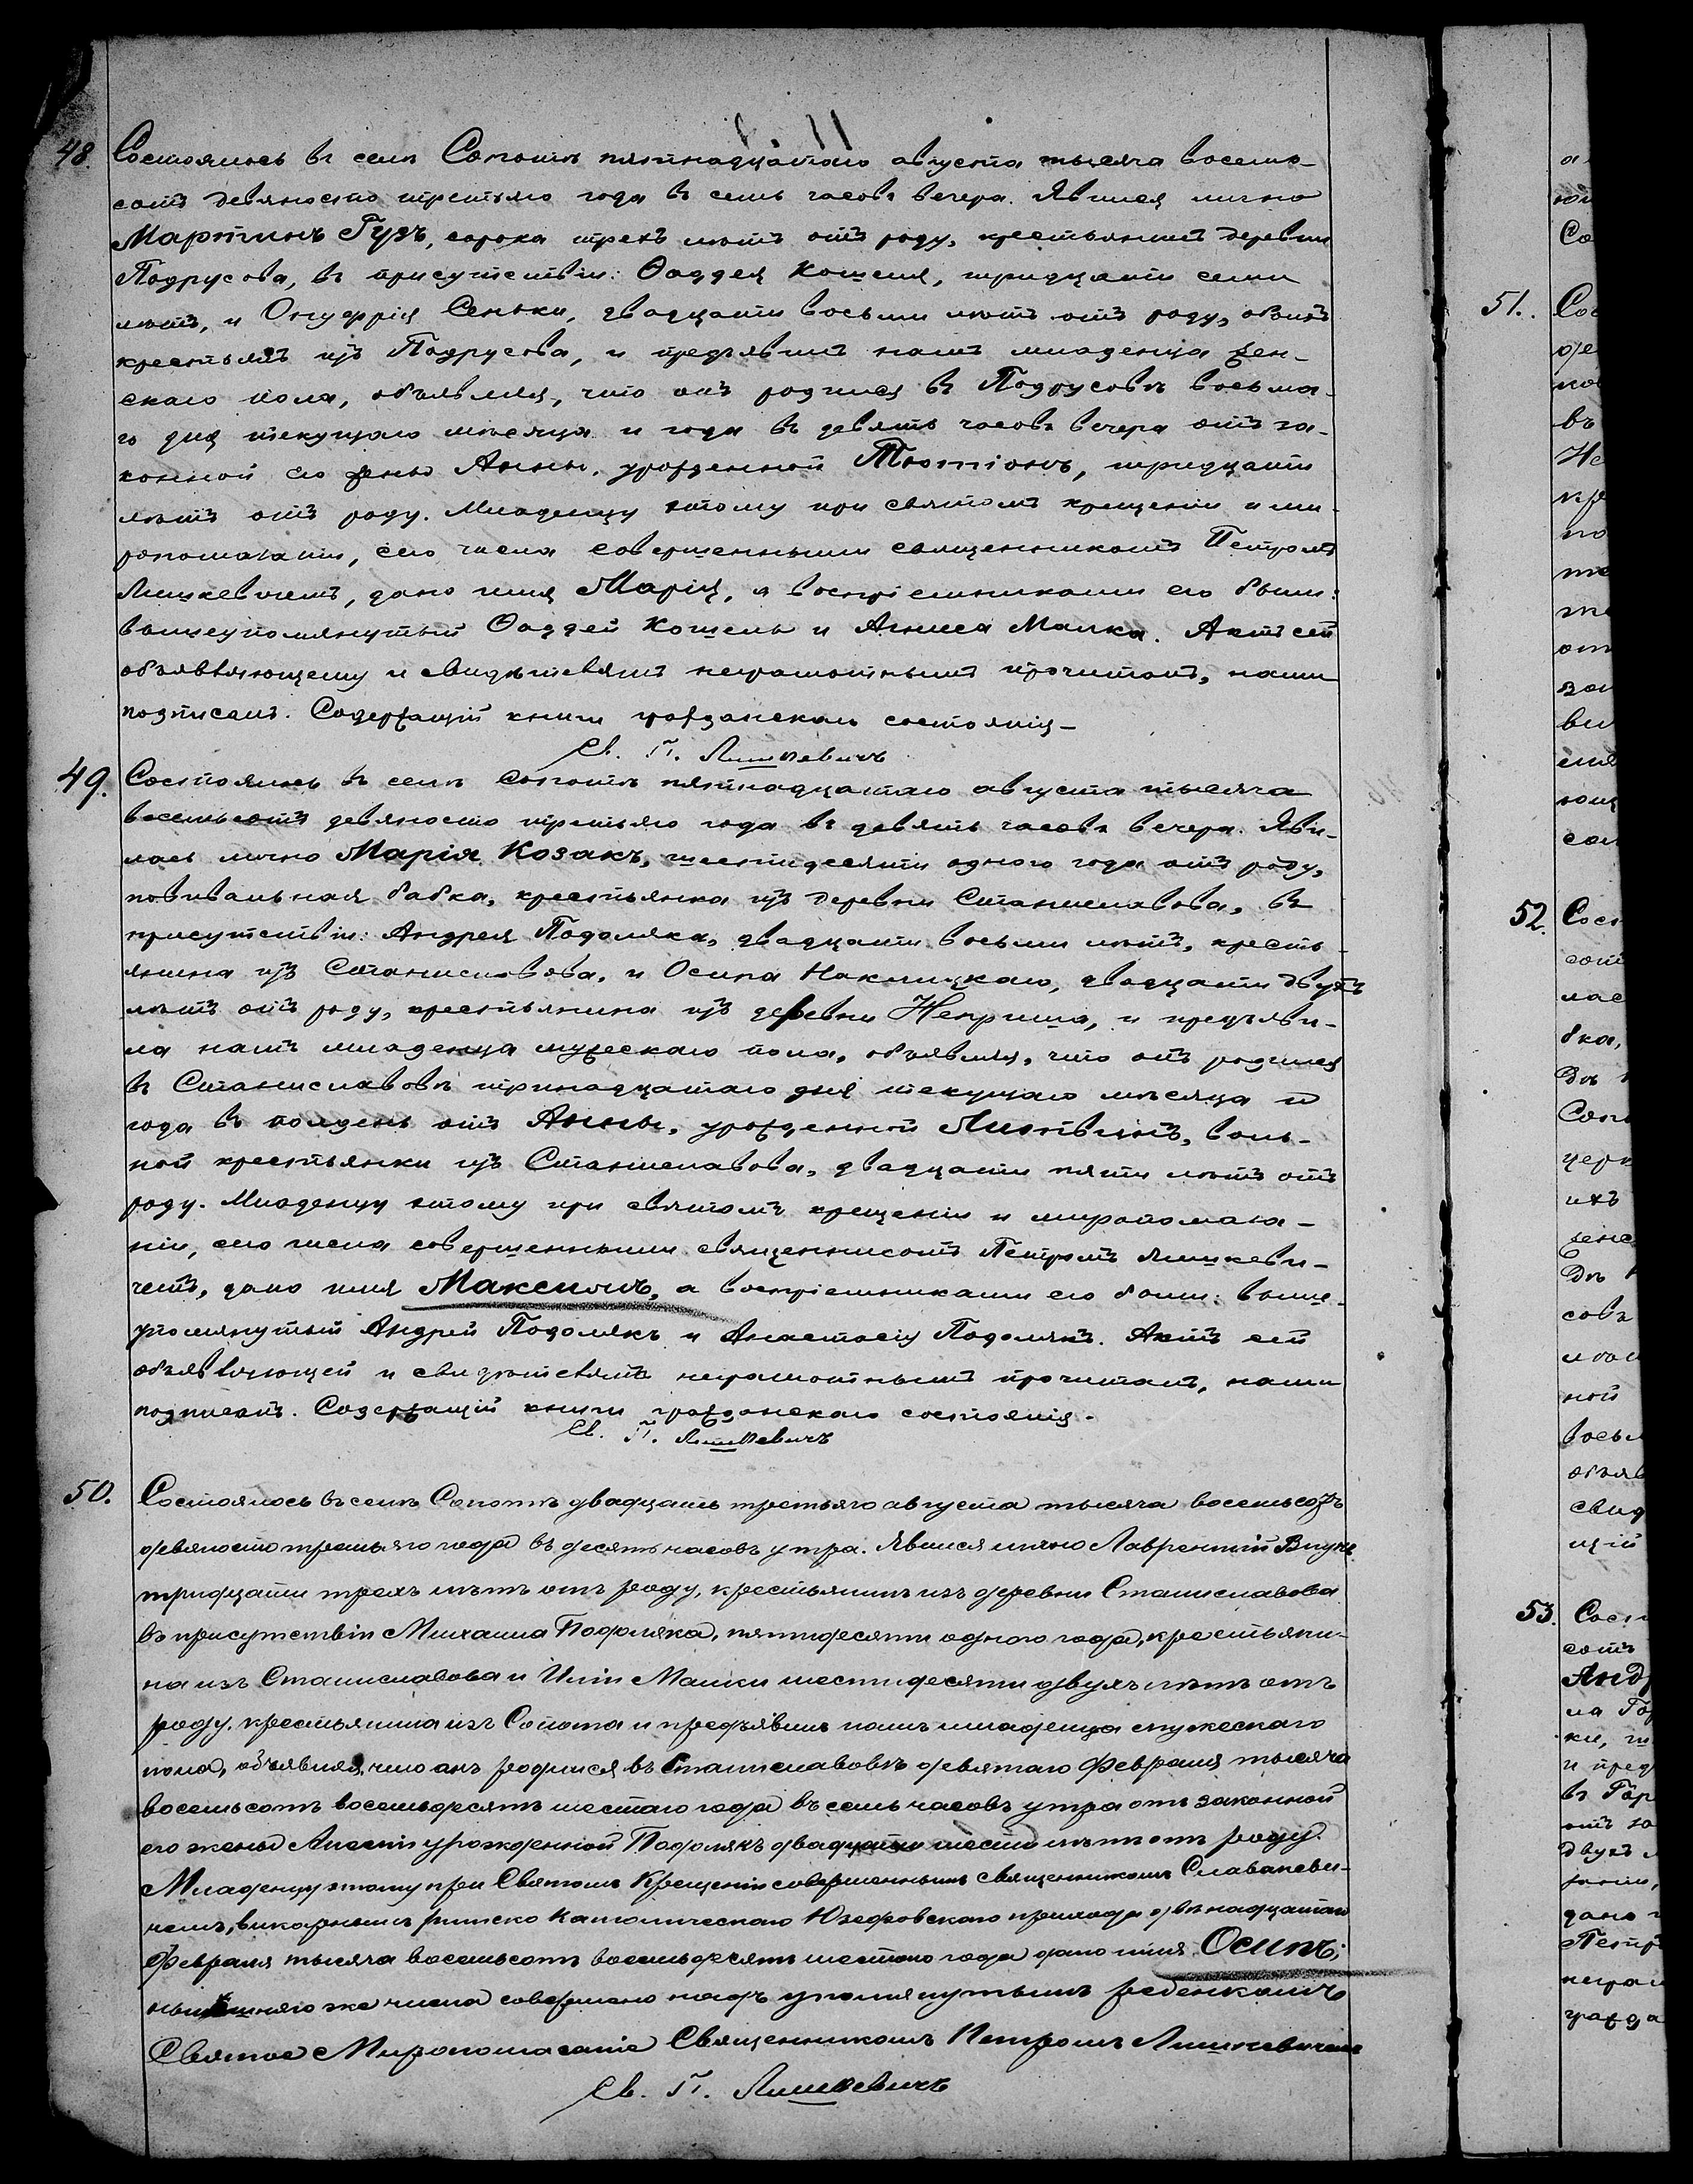 48. Состоялось въ селѣ Сопотѣ пятнадцатаго августа тысяча восемь-
сотъ девяносто третьяго года въ семь часовъ вечера. Явился лично
Мартинъ Гузъ, сорока трехъ лѣтъ отъ роду, крестьянинъ деревни
Подрусова, въ присутствіи: Ѳаддея Кошеля, тридцати семи
лѣтъ, и Онуфрія Сеньки, двадцати восьми лѣтъ отъ роду, обоихъ
крестьянъ изъ Подрусова, и предъявилъ намъ младенца жен-
скаго пола, объявляя, что онъ родился въ Подрусовѣ восьма-
го дня текущаго мѣсяца и года въ девять часовъ вечера отъ за-
конной его жены Анны, урожденной тридцати
лѣтъ отъ роду. Младенцу этому при святомъ крещеніи и ми-
ропомазаніи, сего числа совершенными священникомъ Петромъ
Лишкевичемъ, дано имя Марія, а воспріемниками его были:
вышеупомянутый Ѳаддей Кошель и Малка. Актъ сей
объявляющему и свидѣтелямъ неграмотнымъ прочитанъ, нами
подписанъ. Содержащій книги гражданскаго состоянія –
Св. П. Лишкевичъ
49. Состоялось въ селѣ Сопотѣ пятнадцатаго августа тысяча
восемьсотъ девяносто третьяго года въ девять часовъ вечера. Яви-
лась лично Марія Козакъ, шестидесяти одного года отъ роду,
повивальная бабка, крестьянка изъ деревни Станиславова, въ
присутствіи: Андрея Подоляка, двадцати восьми лѣтъ, кресть-
янина изъ Станиславова, и Осипа Наклицкаго, двадцати двухъ
лѣтъ отъ роду, крестьянина изъ деревни Неприша, и предъяви-
ла намъ младенца мужескаго пола, объявляя, что онъ родился
въ Станиславовѣ тринадцатаго дня текущаго мѣсяца и
года въ полдень отъ Анны, урожденной Литвинъ, воль-
ной крестьянки изъ Станиславова, двадцати пяти лѣтъ отъ
роду. Младенцу этому при святомъ крещеніи и миропомаза-
ніи, сего числа совершенными священникомъ Петромъ Лишкеви-
чемъ, дано имя Максимъ, а воспріемниками его были: выше-
упомянутый Андрей Подолякъ и Анастасія Подолякъ. Актъ сей
объявляющей и свидѣтелямъ неграмотнымъ прочитанъ, нами
подписанъ. Содержащій книги гражданскаго состоянія.
Св. П. Лишкевичъ
50. Состоялось въ селѣ Сопотѣ двадцать третьяго августа тысяча восемьсотъ
девяносто третьяго года въ десять часовъ утра. Явился лично Лаврентій
тридцати трехъ лѣтъ отъ роду, крестьянинъ изъ деревни Станиславова
въ присутствіи Михаила Подоляка, пятидесяти одного года, крестьяни-
на изъ Станиславова и Иліи Малки шестидесяти двухъ лѣтъ отъ
роду, крестьянина изъ Сопота и предъявилъ намъ младенца мужескаго
пола, объявляя, что онъ родился въ Станиславовѣ девятаго Февраля тысяча
восемьсотъ восемьдесятъ шестаго года въ семь часовъ утра отъ законной
его жены урожденной Подолякъ двадцати шести лѣтъ отъ роду.
Младенцу этому при Святомъ Крещеніи совершеннымъ священникомъ
чемъ, викарнымъ римско католическаго Юзефовскаго прихода двѣнадцатаго
Февраля тысяча восемьсотъ восемьдесятъ шестаго года дано имя Осипъ;
нынѣшняго же числа совершено надъ упомянутымъ ребенкомъ
Святое Миропомазаніе Священникомъ Петромъ Лишкевичемъ
Св. П. Лишкевичъ
51.
52.
53.